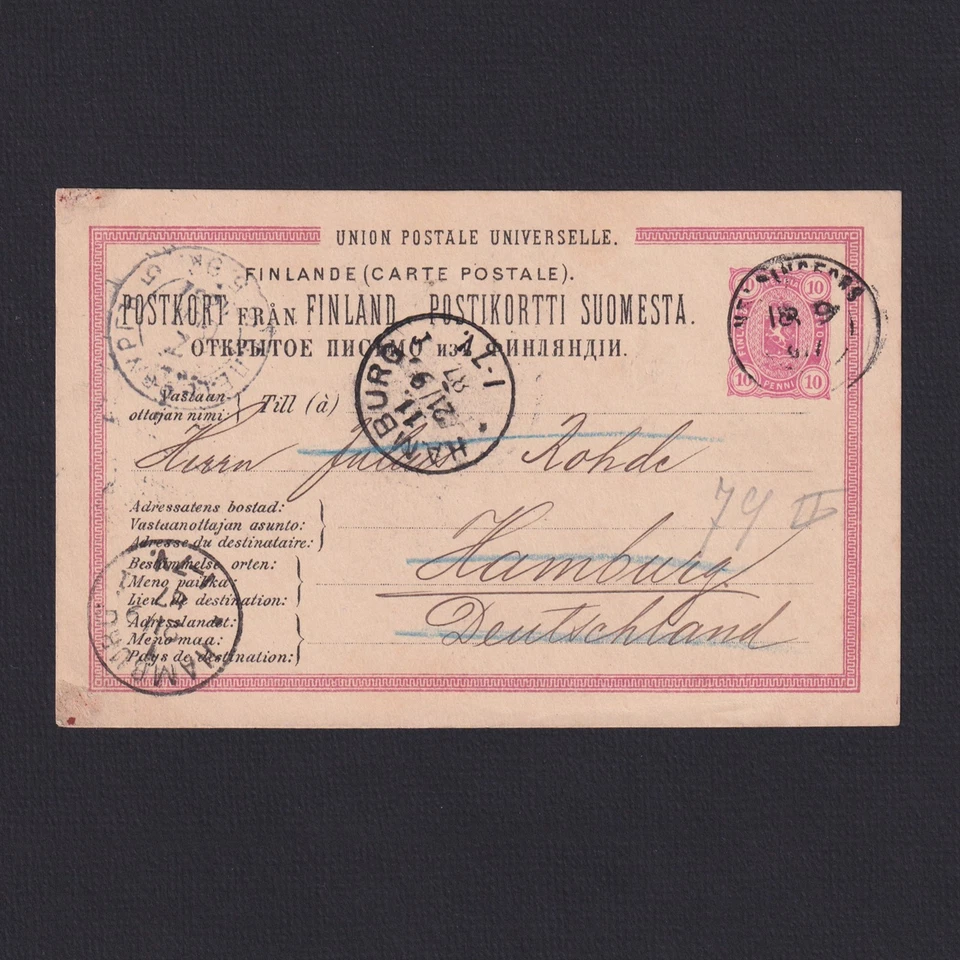 UNION POSTALE UNIVERSELLE.
FINLANDE (CARTE POSTALE).
POSTKORT FRÅN FINLAND. POSTIKORTTI SUOMESTA.
ОТКРЫТОЕ ПИСЬМО изъ ФИНЛЯНДІИ.
10 10
10 PENNI 10
HELSINGFORS
HAMBURG
1
21/9
87
7-1 V.
Vastaan-
ottajan nimi:
Till (à)
Herrn Rohde
79 II
Adressatens bostad:
Vastaanottajan asunto:
Adresse du destinataire:
Hamburg
Bestämmelse orten:
Meno paikka
Lieu de destination:
Deutschland
Adresslandet:
Menomaa:
Pays de destination:
HAMBURG
87